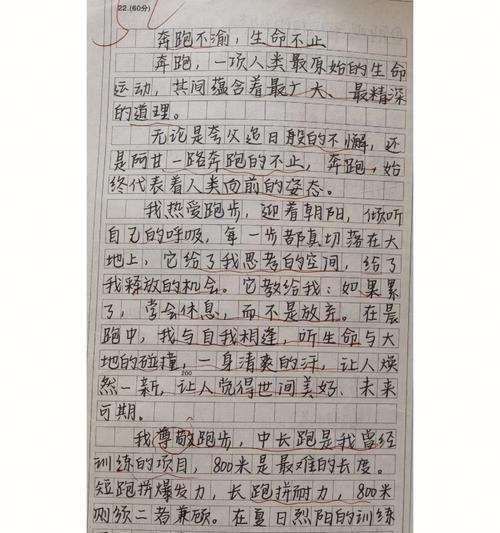 22.(60分)
奔跑不渝，生命不止
奔跑，一项人类最原始的生命
运动，其间蕴含着最广大、最精深
的道理。
无论是夸父追日般的不懈，还
是阿甘一路奔跑的不止，奔跑，始
终代表着人类向前的姿态。
我热爱跑步，迎着朝阳，倾听
自己的呼吸，每一步都真切落在大
地上，它给了我思考的空间，给了
我释放的机会。它教给我：如果累
了，学会休息，而不是放弃。在晨
跑中，我与自我相逢，听生命与大
地的碰撞，一身清爽的汗，让人焕
200
然一新，让人觉得世间美好、未来
可期。
我尊敬跑步，中长跑是我曾经
训练的项目，800米是最难的长度。
短跑拼爆发力，长跑拼耐力，800米
则须二者兼顾。在夏日烈阳的训练